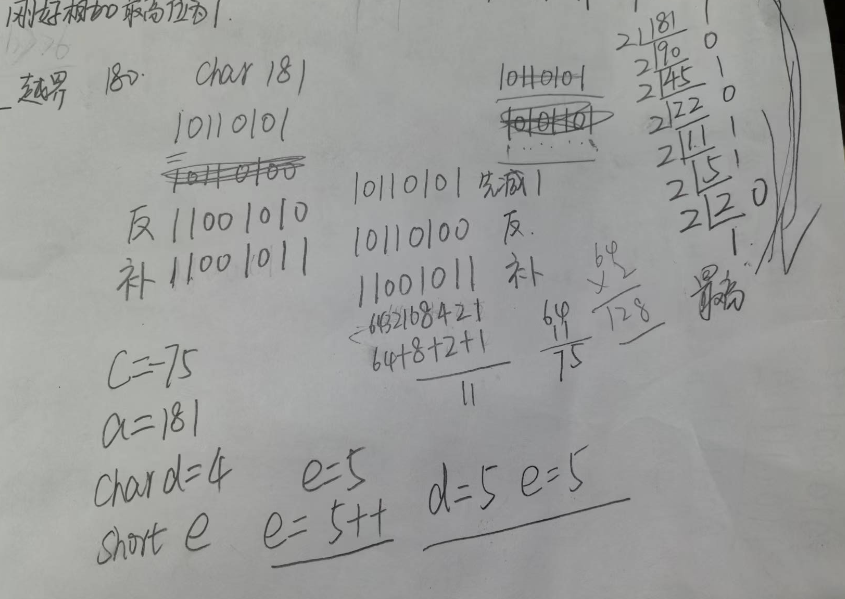 刚好相加最高位为1.
越界 180. char 181
10110101
反 11001010
补 11001011
10110101
10110101 先减1
10110100 反.
11001011 补
6432168421
64+8+2+1
11
64
11
75
64
×2
128
2 181 1
2 90 0
2 45 1
2 22 0
2 11 1
2 5 1
2 2 0
1
最高
C=-75
a=181
char d=4 e=5
short e e=5++ d=5 e=5